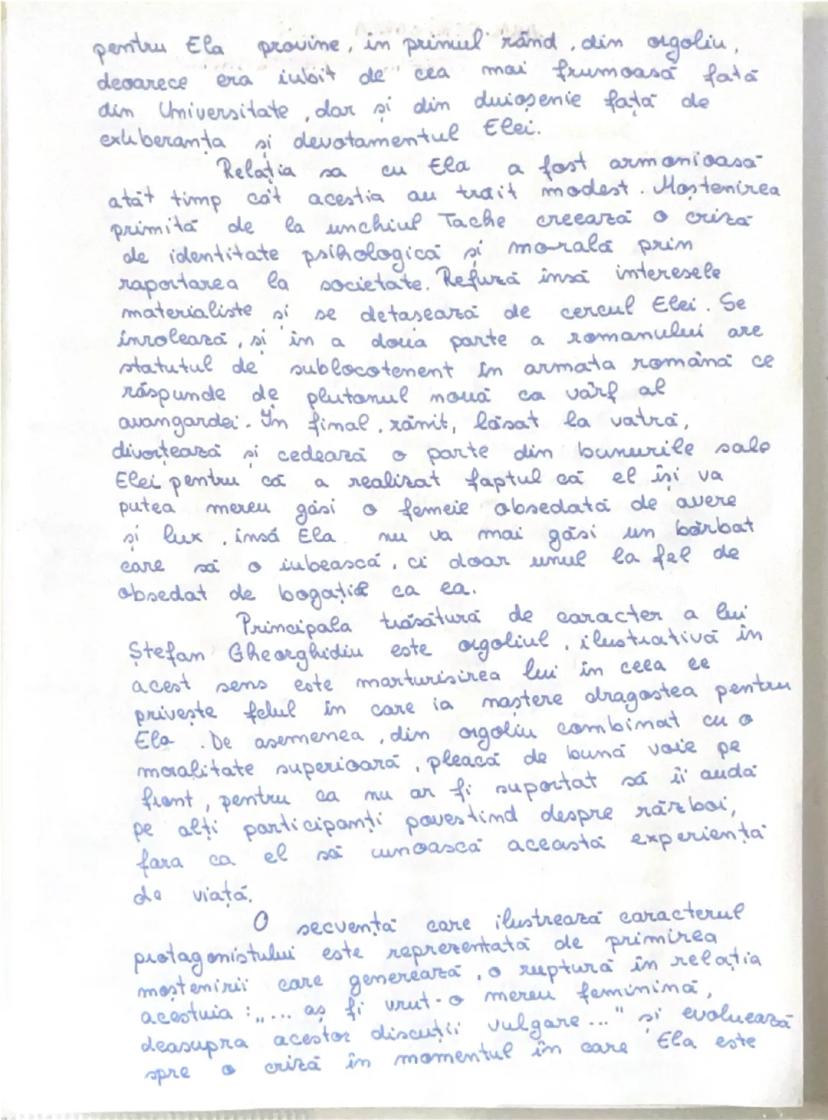 pentru Ela provine, in primul rând, din orgoliu,
deoarece era iubit de cea mai frumoasă fată
din Universitate, dar și din duioșenie față de
exuberanța și devotamentul Elei.
Relația sa cu Ela a fost armonioasă
atât timp cât acestia au trait modest. Moștenirea
primită de la unchiul Tache creează o criză
de identitate psihologică și morală prin
raportarea la societate. Refuză însă interesele
materialiste și se detasează de cercul Elei. Se
înrolează, și în a doua parte a romanului are
statutul de sublocotenent în armata română ce
răspunde de plutonul nouă ca vârf al
avangardei. În final, rănit, lăsat la vatră,
divorțează și cedează o parte din bunurile sale
Elei pentru că a realizat faptul că el își va
putea mereu găsi o femeie obsedată de avere
și lux, însă Ela nu va mai găsi un bărbat
care să o iubească, ci doar unul la fel de
obsedat de bogație ca ea.
Principala trăsătură de caracter a lui
Ștefan Gheorghidiu este orgoliul, ilustrativă în
acest sens este marturisirea lui în ceea ce
privește felul în care ia naștere dragostea pentru
Ela. De asemenea, din orgoliu combinat cu o
moralitate superioară, pleacă de bună voie pe
front, pentru ca nu ar fi suportat să îi audă
pe alți participanți povestind despre război,
fara ca el să cunoască această experiență
de viață.
O secvență care ilustrează caracterul
protagonistului este reprezentată de primirea
moștenirii care generează, o ruptură în relația
acestuia: „... aș fi vrut-o mereu feminină,
deasupra acestor discuții vulgare..." și evoluează
spre o criză în momentul în care Ela este